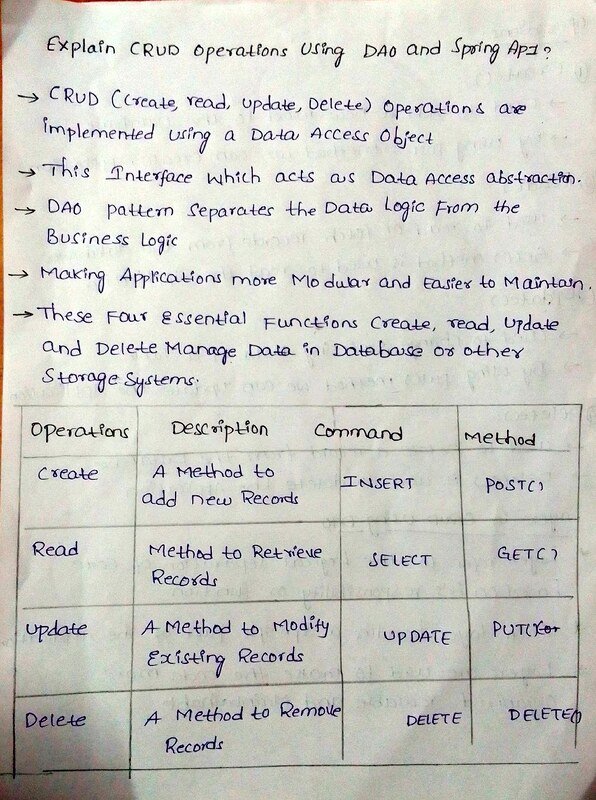 Explain CRUD Operations Using DAO and Spring API?
→ CRUD (Create, read, update, Delete) Operations are
implemented using a Data Access Object
→ This Interface which acts as Data Access abstraction.
→ DAO pattern separates the Data Logic From the
Business Logic
→ Making Applications more Modular and Easier to Maintain.
→ These Four Essential Functions Create, read, Update
and Delete Manage Data in Database or other
Storage Systems.
Operations Description Command Method
Create A Method to INSERT POST()
add new Records
Read Method to Retrieve SELECT GET()
Records
Update A Method to Modify UPDATE PUT()
Existing Records
Delete A Method to Remove DELETE DELETE()
Records